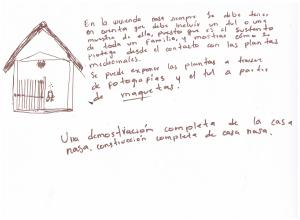 En la vivienda nasa siempre se debe tener
en cuenta que debe incluir un tul o una
muestra de ella, puesto que es el sustento
de toda un familia, y mostrar cómo se
protege desde el contacto con las plantas
medicinales.
Se puede exponer las plantas a travez
de fotografias y el tul a partir
de maquetas.
Una demostración completa de la casa
nasa, construcción completa de casa nasa.